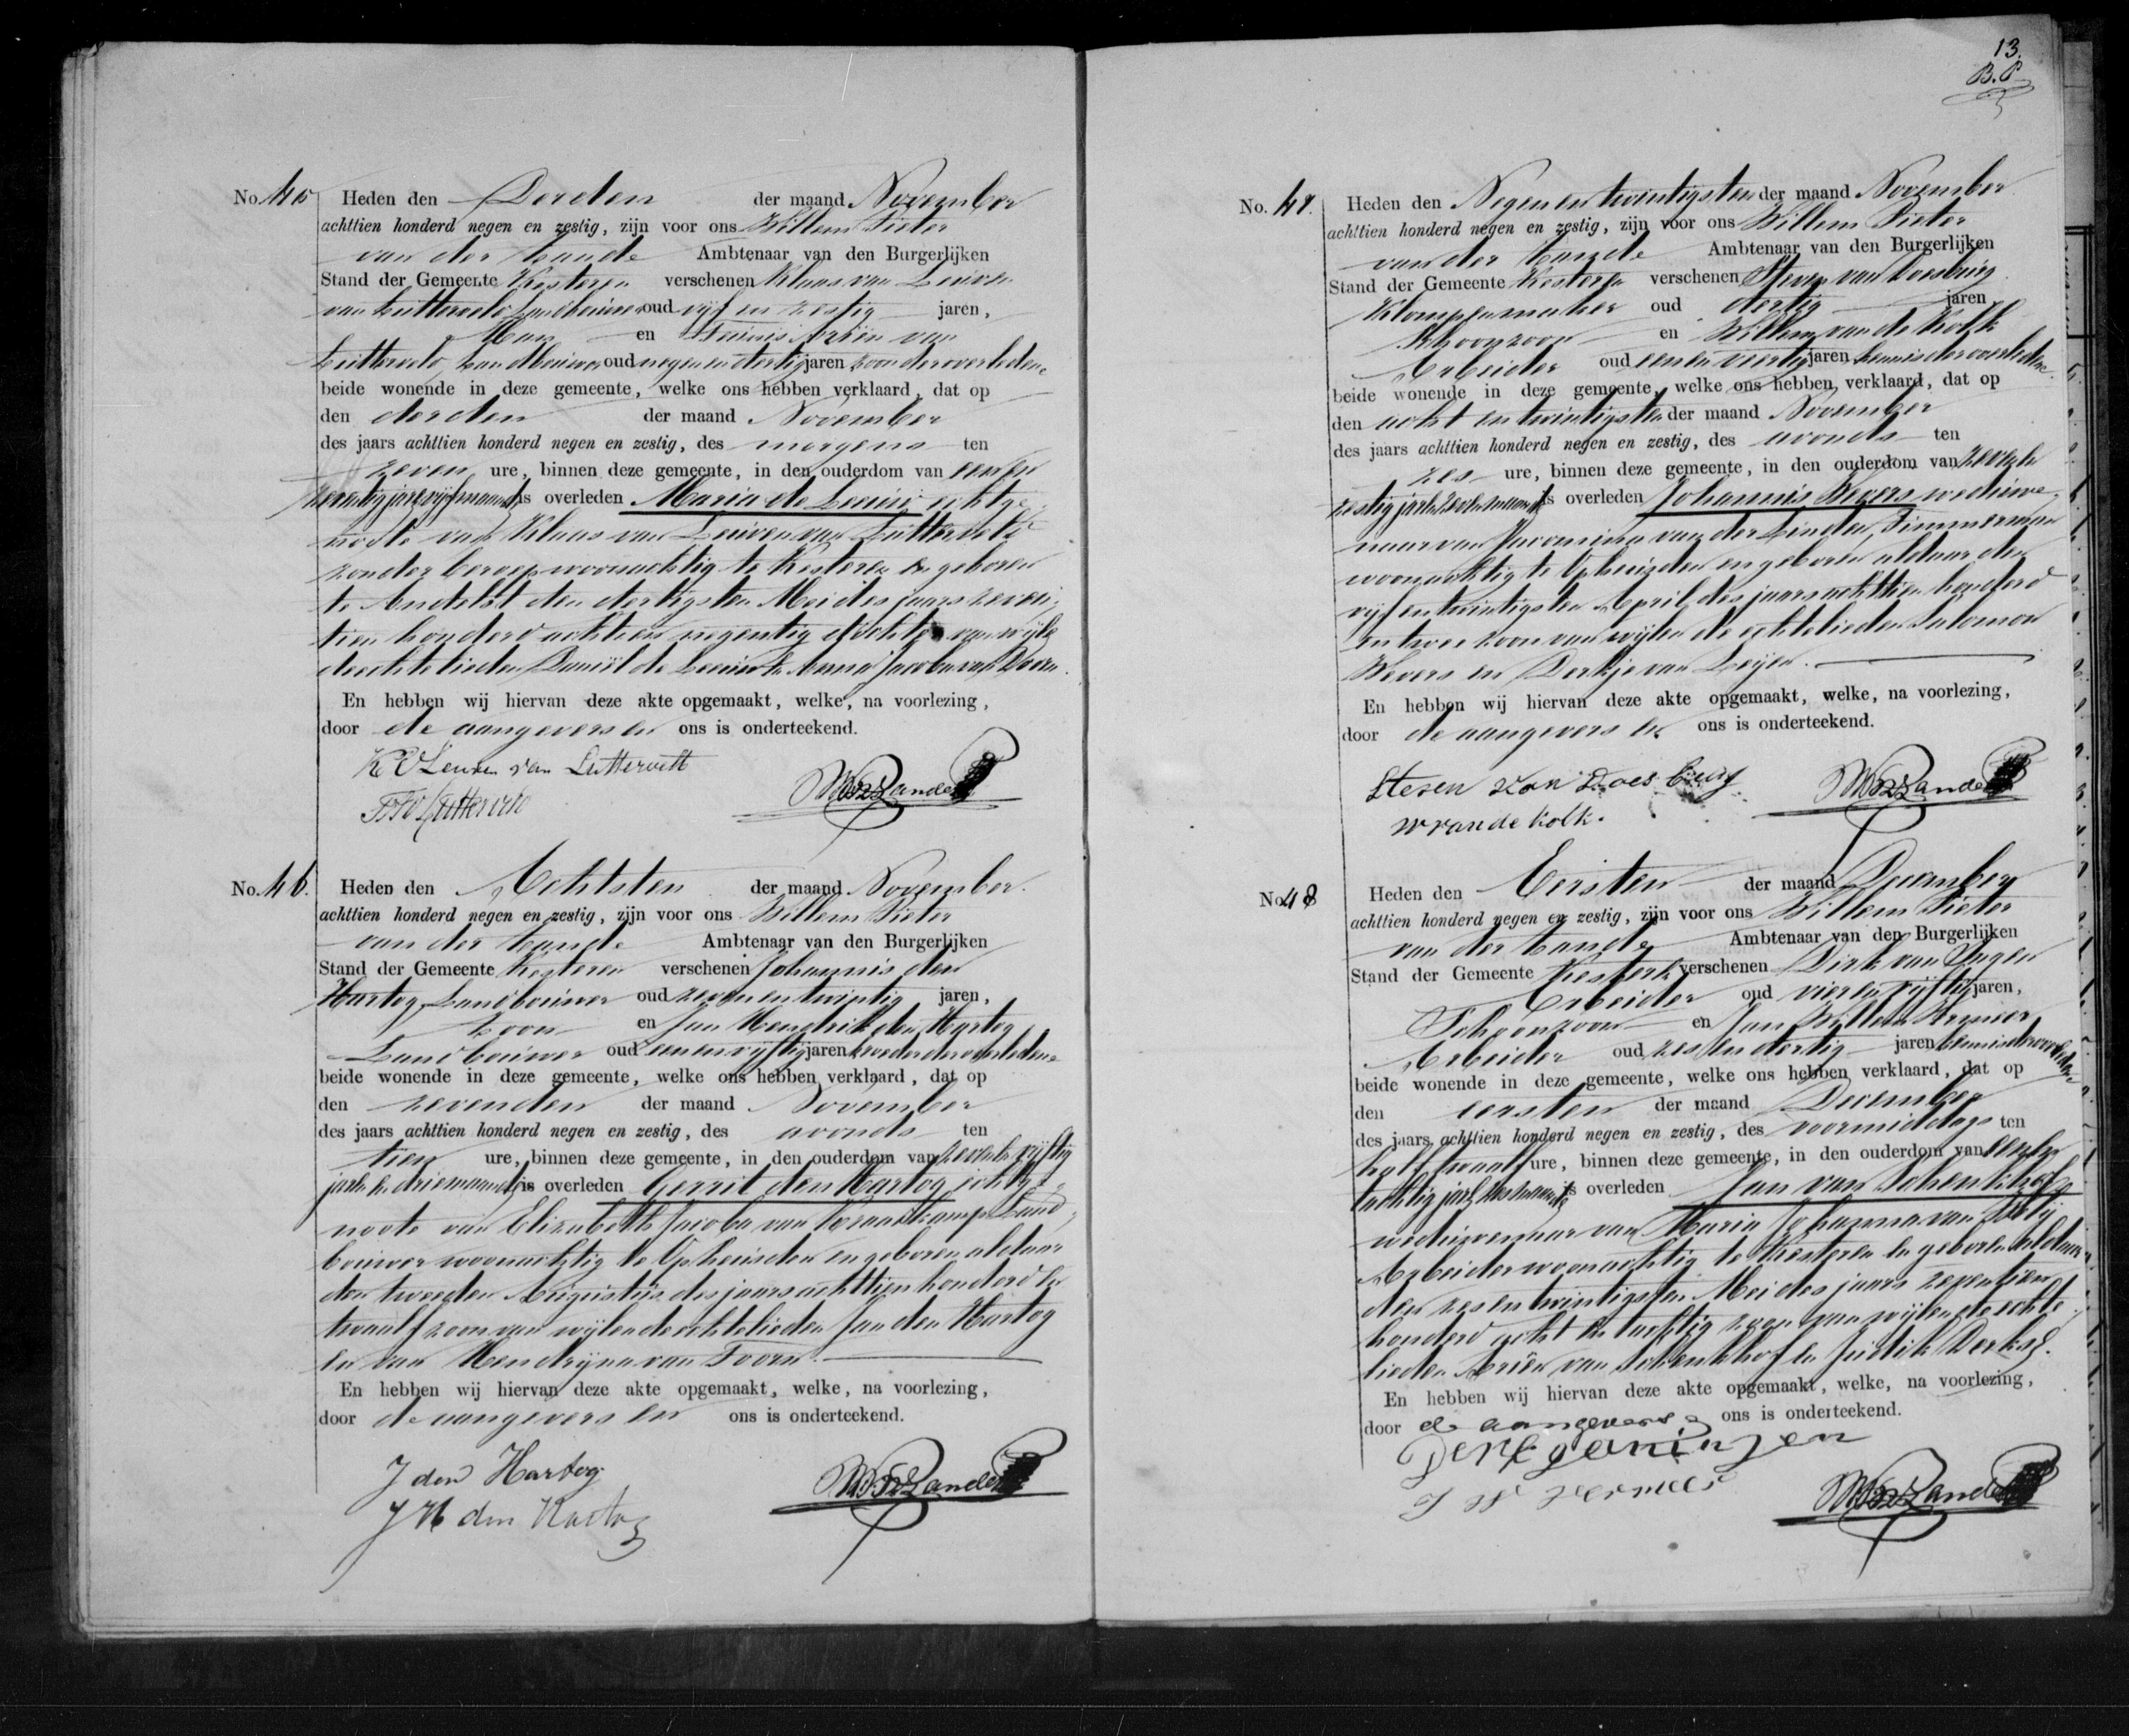 No. 45 Heden den Derden der maand November
achttien honderd negen en zestig, zijn voor ons Willem Pieter
van der Zande Ambtenaar van den Burgerlijken
Stand der Gemeente Kesteren verschenen Klaas van Leuven
van Lutterveld Landbouwer oud vijf en zestig jaren,
Man en Teunis Ariën van
Lutterveld, Landbouwer oud negen en dertig jaren zoon der overledene
beide wonende in deze gemeente, welke ons hebben verklaard, dat op
den derden der maand November
des jaars achttien honderd negen en zestig, des morgens ten
zeven ure, binnen deze gemeente, in den ouderdom van een en
zeventig jaren vijf maanden is overleden Maria de Leeuw echtge-
noote van Klaas van Leuven van Lutterveld
zonder beroep woonachtig te Kesteren en geboren
te Andelst den dertigsten Mei des jaars zeven-
tien honderd acht en negentig dochter van wijle
de echtelieden Daniël de Leeuw en Anna Jacoba van Doorn.
En hebben wij hiervan deze akte opgemaakt, welke, na voorlezing,
door de aangevers en ons is onderteekend.
K V Leuven van Luttervelt
T A V Lutterveld
WPvdZande
No. 46. Heden den Achtsten der maand November.
achttien honderd negen en zestig, zijn voor ons Willem Pieter
van der Zande Ambtenaar van den Burgerlijken
Stand der Gemeente Kesteren verschenen Johannis den
Hartog Landbouwer oud zeven en twintig jaren,
Zoon en Jan Hendrik den Hartog
Landbouwer oud een en vijftig jaren broeder der overledene
beide wonende in deze gemeente, welke ons hebben verklaard, dat op
den zevenden der maand November
des jaars achttien honderd negen en zestig, des avonds ten
tien ure, binnen deze gemeente, in den ouderdom van zeven en vijftig
jaren en drie maanden is overleden Gerrit den Hartog echtge-
noote van Elizabeth Jacoba van Braaskamp Land-
bouwer woonachtig te Opheusden en geboren aldaar
den tweeden Augustus des jaars achttien honderd en
twaalf zoon van wijlen de echtelieden Jan den Hartog
en van Hendrijna van Toorn.
En hebben wij hiervan deze akte opgemaakt, welke, na voorlezing,
door de aangevers en ons is onderteekend.
J den Hartog
J H den Hartog
WPvdZande
13.
B. P
No. 47. Heden den Negen en twintigsten der maand November
achttien honderd negen en zestig, zijn voor ons Willem Pieter
van der Zande Ambtenaar van den Burgerlijken
Stand der Gemeente Kesteren verschenen Steven van Doesburg
Klompenmaker oud dertig jaren
Schoonzoon en Willem van de Kolk
Arbeider oud een en veertig jaren kennis der overledene.
beide wonende in deze gemeente, welke ons hebben verklaard, dat op
den acht en twintigsten der maand November
des jaars achttien honderd negen en zestig, des avonds ten
zes ure, binnen deze gemeente, in den ouderdom van zeven en
zestig jaren zeven maanden is overleden Johannis Wevers weduwe-
naar van van der Linden Timmerman
woonachtig te Opheusden en geboren aldaar den
vijf en twintigsten April des jaars achttien honderd
en twee zoon van wijlen de echtelieden Salomon
Wevers en Derkje van Leijen.
En hebben wij hiervan deze akte opgemaakt, welke, na voorlezing,
door de aangevers en ons is onderteekend.
Steven van Does burg
W van de Kolk.
WPvdZande
No 48 Heden den Eersten der maand December
achttien honderd negen en zestig, zijn voor ons Willem Pieter
van der Zande Ambtenaar van den Burgerlijken
Stand der Gemeente Kesteren verschenen Dirk van Ingen
Arbeider oud vier en vijftig jaren,
Schoonzoon en Jan Willem Vermeer
Arbeider oud zes en dertig jaren kennis der overledene
beide wonende in deze gemeente, welke ons hebben verklaard, dat op
den eersten der maand December
des jaars achttien honderd negen en zestig, des voormiddags ten
half twaalf ure, binnen deze gemeente, in den ouderdom van een en
tachtig jaren zes maanden is overleden Jan van Schenkhof
weduwenaar van Maria Johanna van
Arbeider woonachtig te Kesteren en geboren aldaar
den zes en twintigsten Mei des jaars zeventien
honderd acht en tachtig zoon van wijlen de echte-
lieden Ariën van Schenkhof en Judik Derksz.
En hebben wij hiervan deze akte opgemaakt, welke, na voorlezing,
door de aangevers en ons is onderteekend.
J W Vermeer
WPvdZande